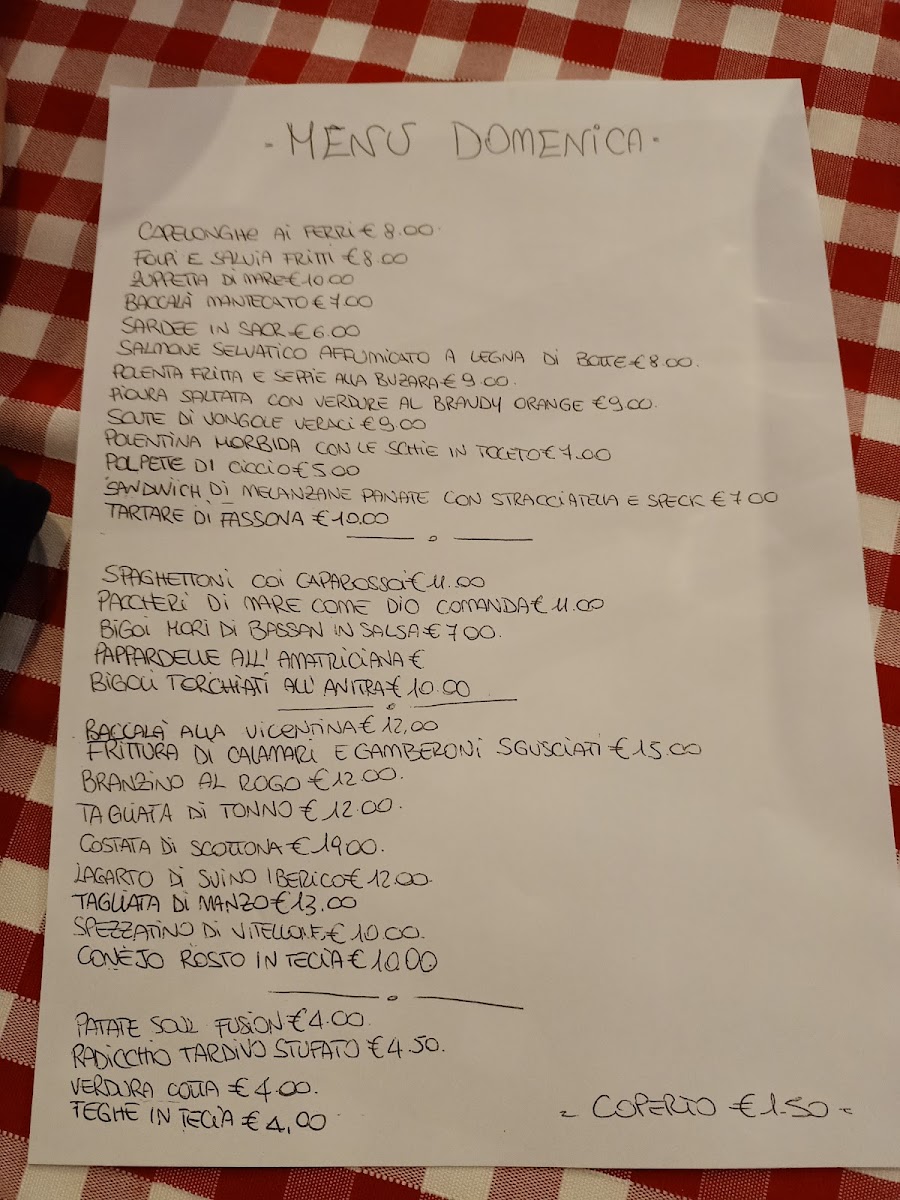 - MENU DOMENICA -
CAPELONGHE AI FERRI € 8.00
FOLPI E SALVIA FRITTI € 8.00
ZUPPETTA DI MARE € 10.00
BACCALÀ MANTECATO € 7.00
SARDEE IN SAOR € 6.00
SALMONE SELVATICO AFFUMICATO A LEGNA DI BOTTE € 8.00.
POLENTA FRITTA E SEPPIE ALLA BUZARA € 9.00.
PIOVRA SALTATA CON VERDURE AL BRANDY ORANGE € 9.00.
SOUTE DI VONGOLE VERACI € 9.00
POLENTINA MORBIDA CON LE SCHIE IN TOCETO € 7.00
POLPETTE DI CICCIO € 5.00
SANDWICH DI MELANZANE PANATE CON STRACCIATELLA E SPECK € 7.00
TARTARE DI FASSONA € 10.00
SPAGHETTONI COI CAPAROSSOI € 11.00
PACCHERI DI MARE COME DIO COMANDA € 11.00
BIGOI MORI DI BASSAN IN SALSA € 7.00.
PAPPARDELLE ALL' AMATRICIANA €
BIGOLI TORCHIATI ALL' ANITRA € 10.00
BACCALÀ ALLA VICENTINA € 12,00
FRITTURA DI CALAMARI E GAMBERONI SGUSCIATI € 15.00
BRANZINO AL ROGO € 12.00.
TAGLIATA DI TONNO € 12.00.
COSTATA DI SCOTTONA € 19.00.
LAGARTO DI SUINO IBERICO € 12.00.
TAGLIATA DI MANZO € 13.00
SPEZZATINO DI VITELLONE € 10.00.
CONEJO ROSTO IN TECIA € 10.00
PATATE SOUL FUSION € 4.00.
RADICCHIO TARDIVO STUFATO € 4.50.
VERDURA COTTA € 4.00.
TEGHE IN TECIA € 4,00
= COPERTO € 1.50 =